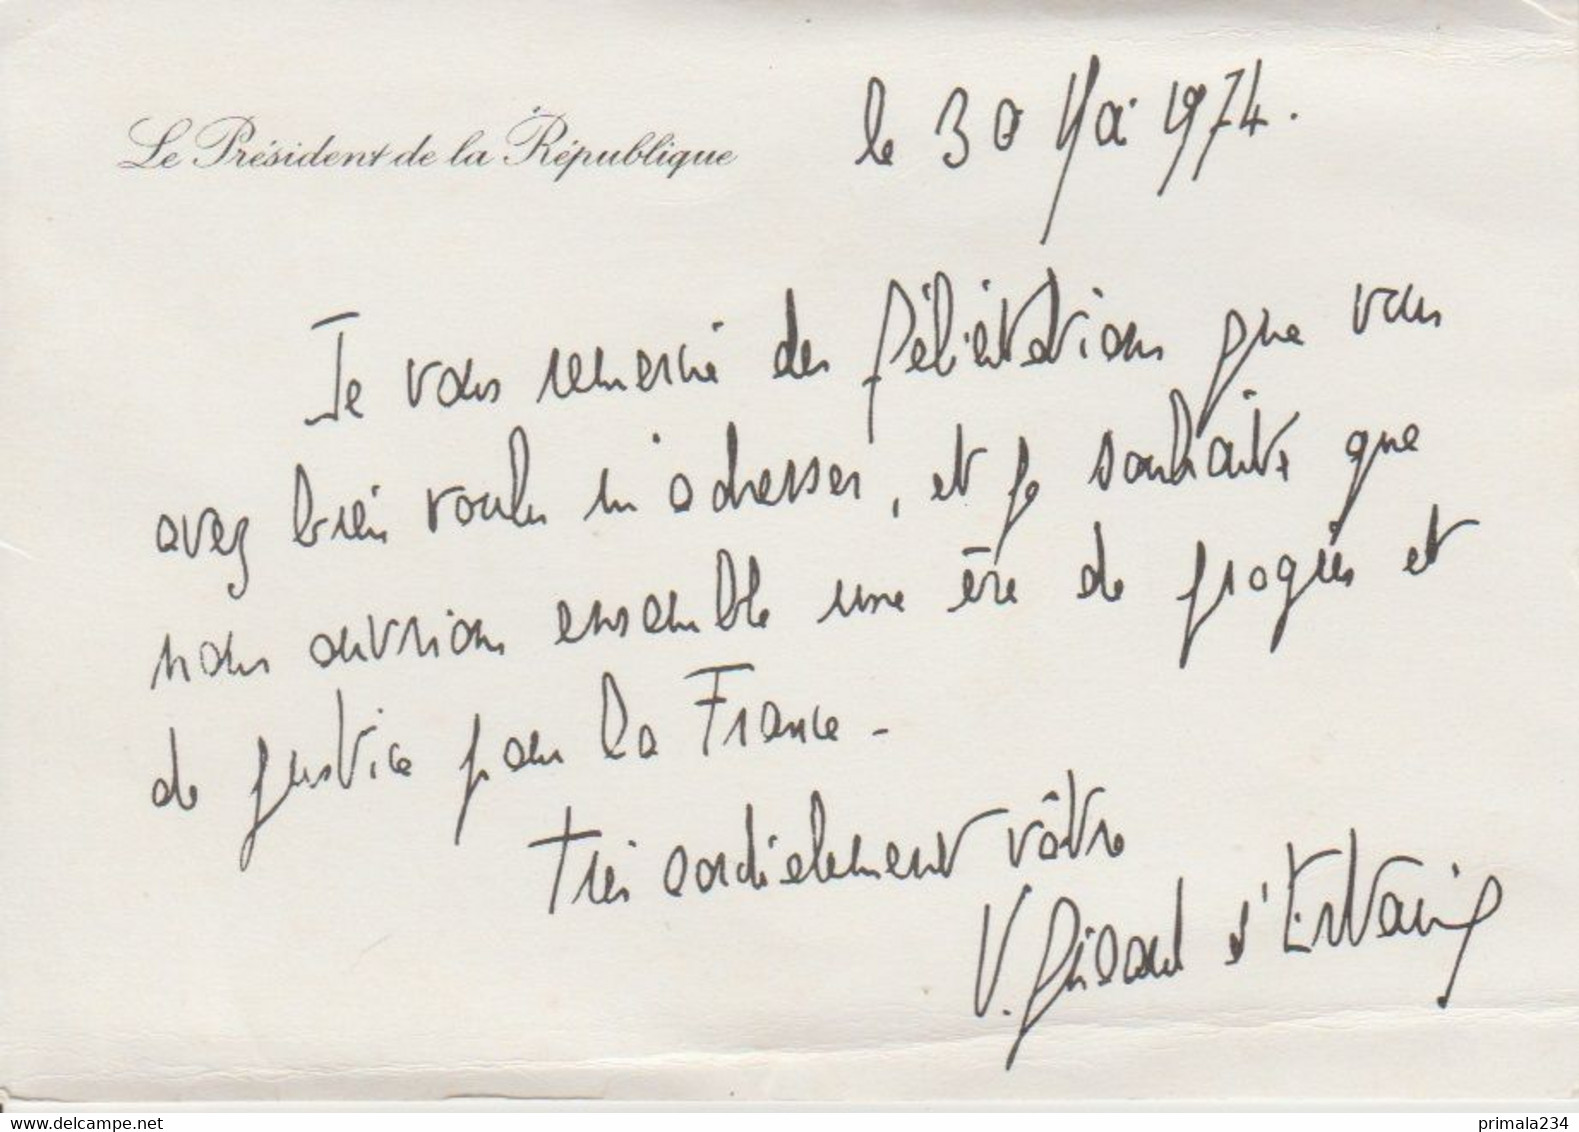 Le Président de la République
le 30 Mai 1974.
Je vous remercie des félicitations que vous
avez bien voulu m'adresser, et je souhaite que
nous ouvrions ensemble une ère de progrès et
de justice pour la France -
Très cordialement vôtre
V. Giscard d'Estaing
www.delcampe.net
primala234